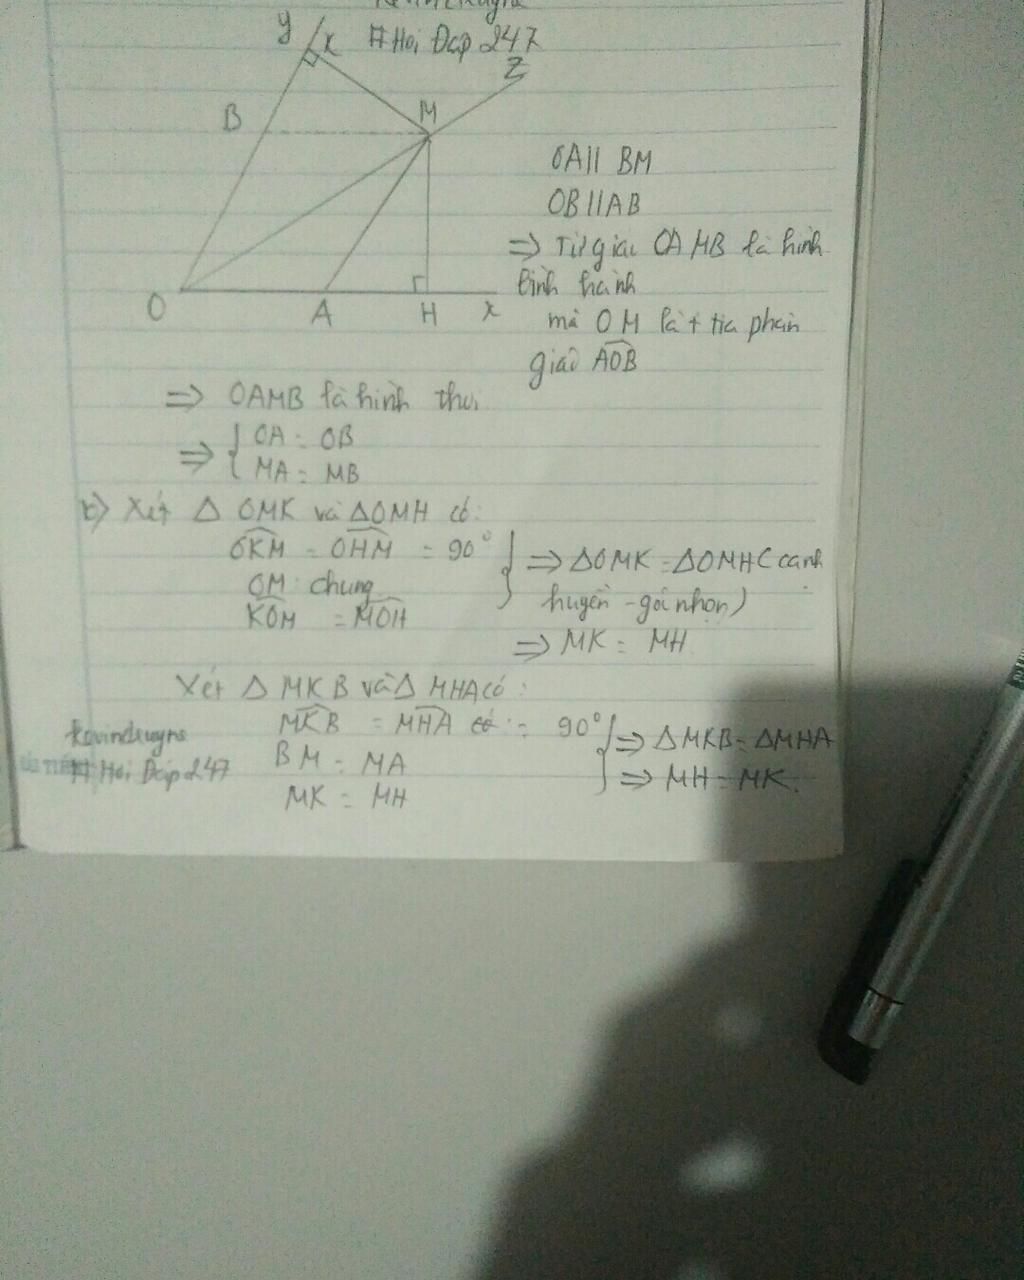 #Hỏi Đáp 247
y
K
Z
B
M
O
A
H
x
OA || BM
OB || AB
=> Tứ giác OAMB là hình
bình hành
mà OM là t tia phân
giác AOB
=> OAMB là hình thoi
=> { OA = OB
MA = MB
b) Xét Δ OMK và ΔOMH có:
OKM = OHM = 90°
OM chung
KOM = MOH
} => ΔOMK = ΔOMH (cạnh
huyền - góc nhọn)
=> MK = MH
Xét Δ MKB và Δ MHA có:
MKB = MHA có = 90°
BM = MA
MK = MH
} => ΔMKB = ΔMHA
=> MH = MK.
# Hỏi Đáp 247